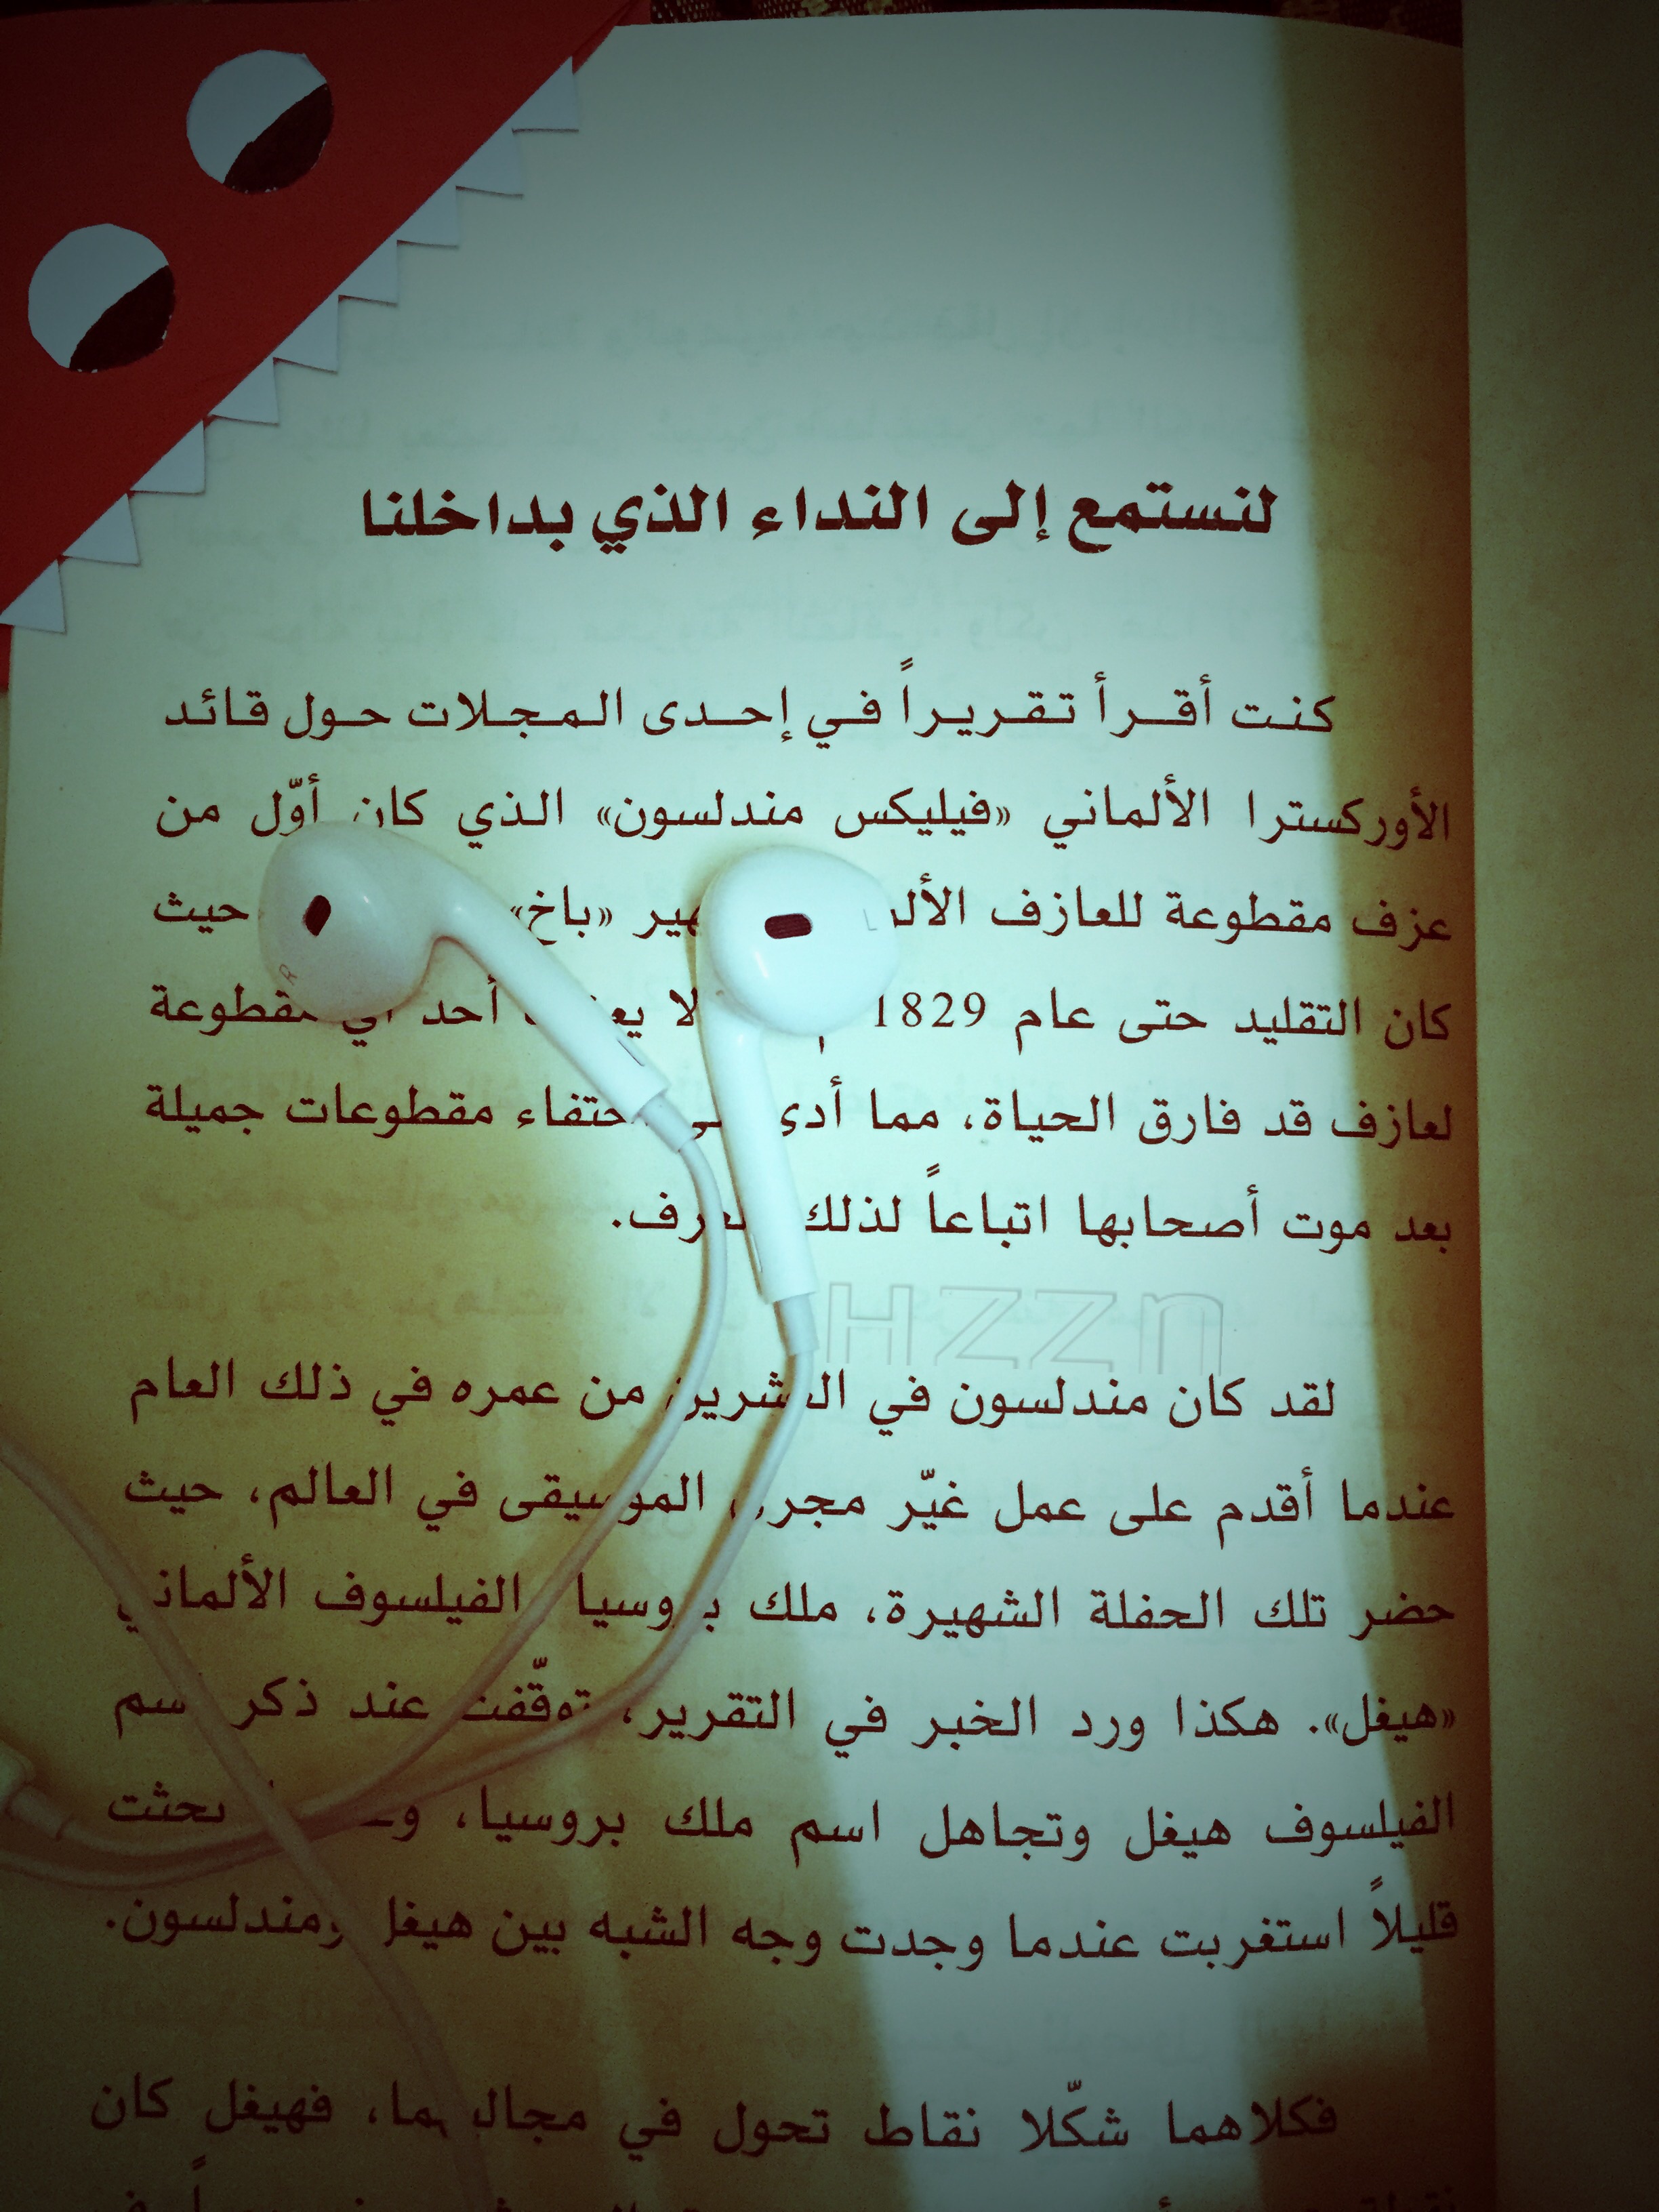 لنستمع إلى النداء الذي بداخلنا
كنت أقرأ تقريراً في إحدى المجلات حول قائد
الأوركسترا الألماني «فيليكس مندلسون» الذي كان أوّل من
عزف مقطوعة للعازف «باخ» حيث
كان التقليد حتى عام 1829 لا أحد مقطوعة
لعازف قد فارق الحياة، مما أدى مقطوعات جميلة
بعد موت أصحابها اتباعاً لذلك العرف.
HZZN
لقد كان مندلسون في العشرين من عمره في ذلك العام
عندما أقدم على عمل غيّر مجرى الموسيقى في العالم، حيث
حضر تلك الحفلة الشهيرة، ملك بروسيا الفيلسوف الألماني
«هيغل». هكذا ورد الخبر في التقرير، توقّفت عند ذكر اسم
الفيلسوف هيغل وتجاهل اسم ملك بروسيا، بحثت
قليلاً استغربت عندما وجدت وجه الشبه بين هيغل ومندلسون.
فكلاهما شكّلا نقاط تحول في مجالهما، فهيغل كان